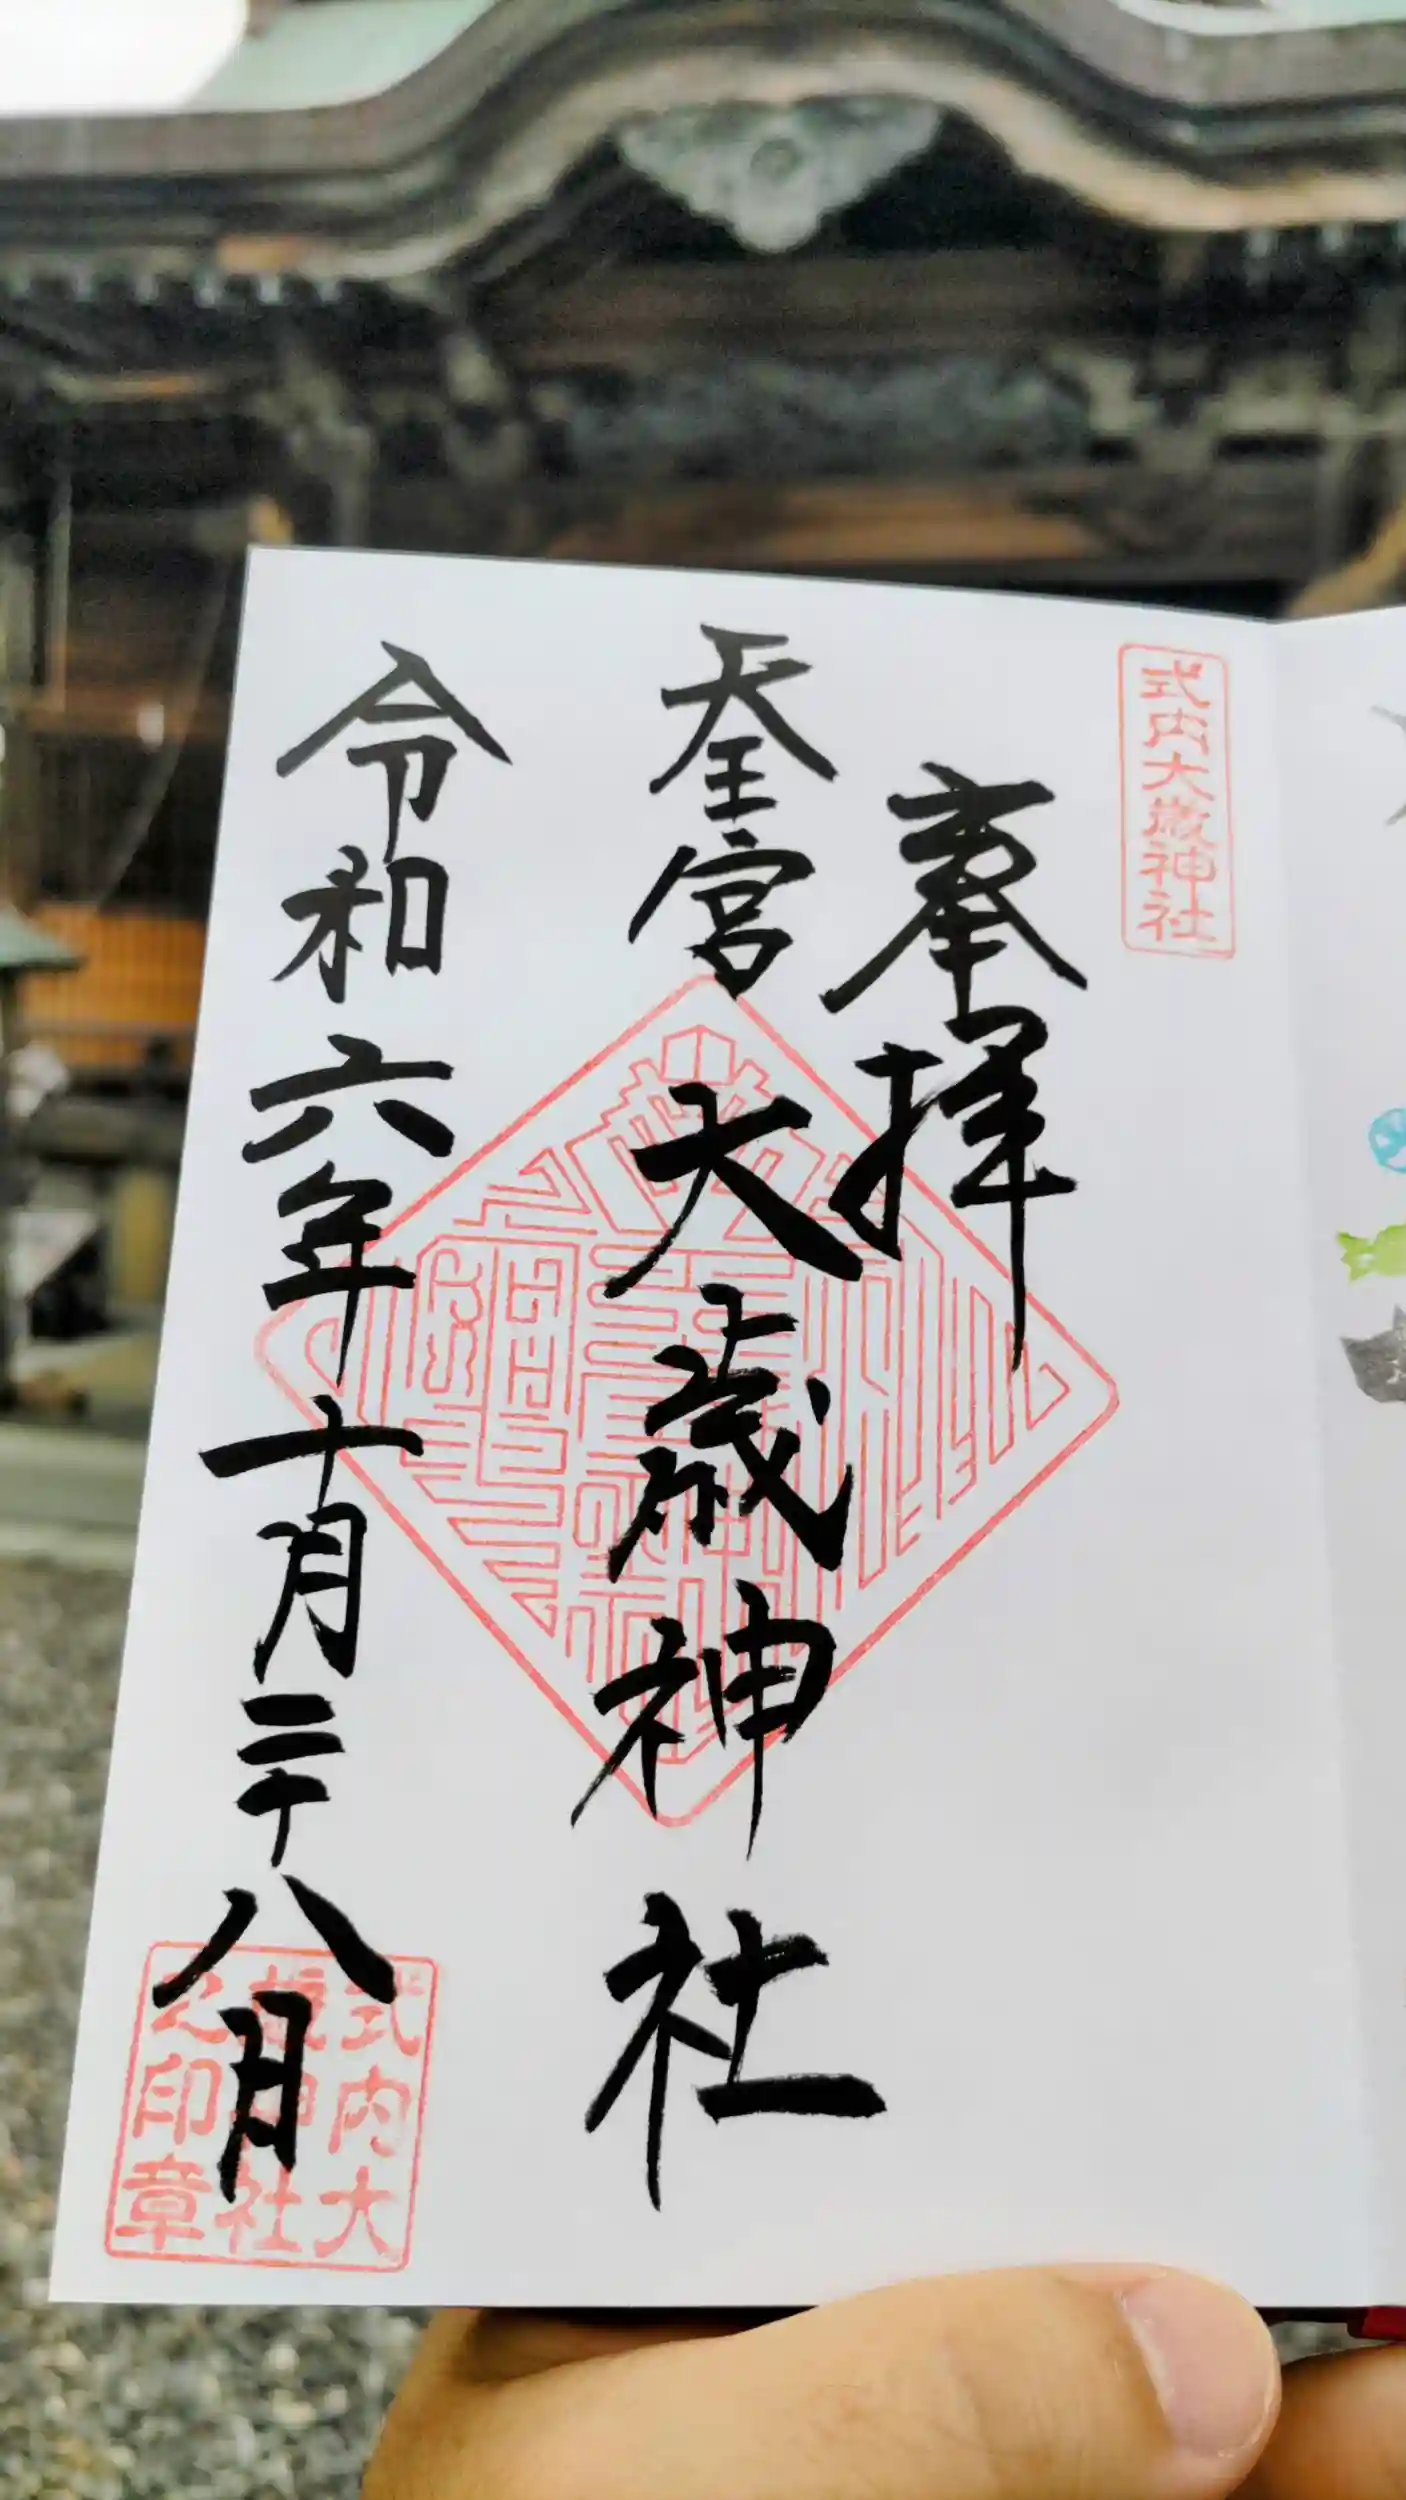 式内大歳神社
奉拝
天王宮 大歳神社
令和六年十月二十八日
式内大
歳神社
之印章